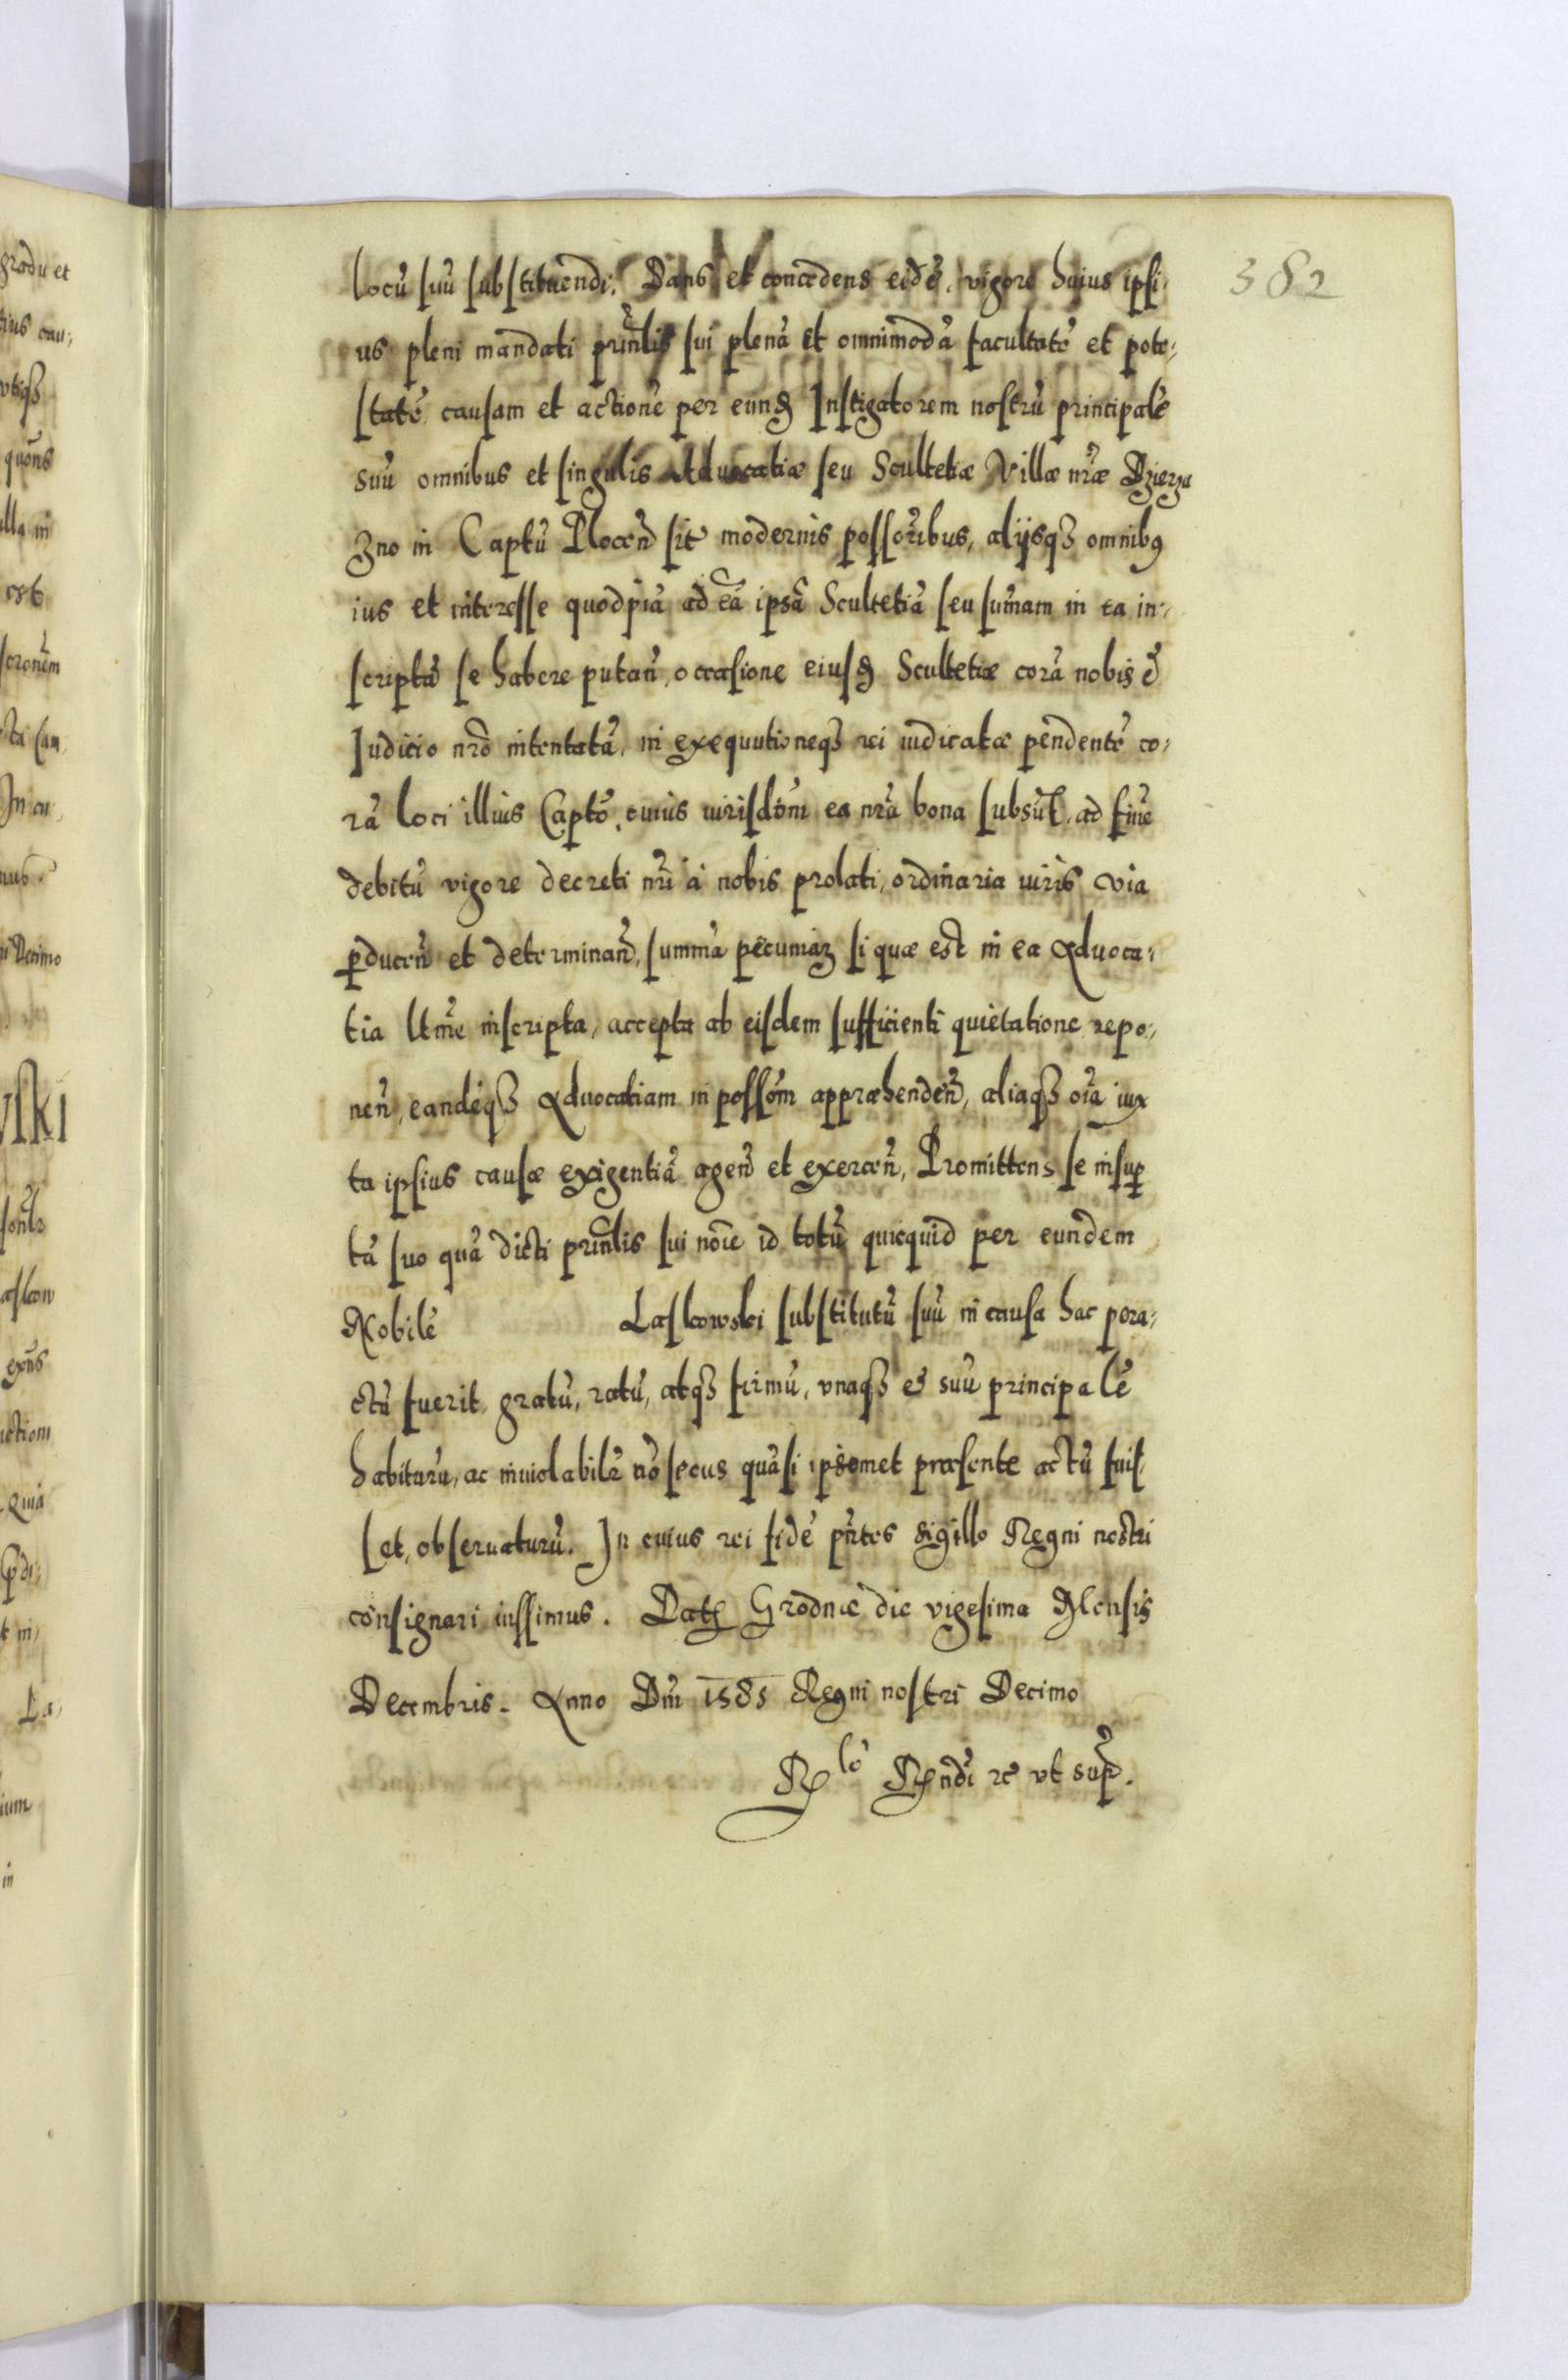 382
locũ suũ substituendi. Dans et concedens eidẽ, vigore huius ipsi,
us pleni mandati prinᷓlis sui plenã et omnimodã facultatẽ et pote,
statẽ causam et actionẽ per eunđ Instigatorem nostrũ principalẽ
suũ omnibus et singulis Aduocatiæ seu Scultetiæ Villæ nr̃æ Dzierza
zno in Captũ Plocen̄ sit̃ modernis possor̃ibus, alijsqȝ omnibꝰ
ius et interesse quodpiã ad eã ipsã Scultetiã seu sum̃am in ea in,
scriptã se habere putan̄, occasione eiusđ Scultetiæ corã nobis ẽ
Iudicio nr̃o intentatã, in exequutioneqȝ rei iudicatæ pendentẽ co,
rã loci illius Captõ, cuius iurisdõni ea nr̃a bona subsũt, ad finẽ
debitũ vigore decreti nr̃i à nobis prolati, ordinaria iuris via
ꝑducen̄ et determinan̄, summã pecuniaꝝ si quæ est in ea Aduoca,
tia ltm̃e inscripta, accepta ab eisdem sufficienti quietatione repo,
nen̄, eandẽqȝ Aduocatiam in possõm appræhenden̄, aliaqȝ oĩa iux
ta ipsius causæ exigentiã agen̄ et exercen̄, Promittens se insuꝑ
tã suo quã dicti prinᷓlis sui noĩe id totũ quicquid per eundem
Nobilẽ Laskowski substitutũ suũ in causa hac pera,
ctũ fuerit, gratũ, ratũ, atqȝ firmũ, vnaqȝ et suũ principalẽ
habiturũ, ac inuiolabilr̃ nõ secus quã si ipsomet præsente actũ fuis,
set, obseruaturũ. In cuius rei fidẽ pñtes sigillo Regni nostri
consignari iussimus. Datꝭ Grodnæ die vigesima Mensis
Decembris. Anno Dñi 1585 Regni nostri Decimo
Rlõ Rndi rc̃ vt sup̃.